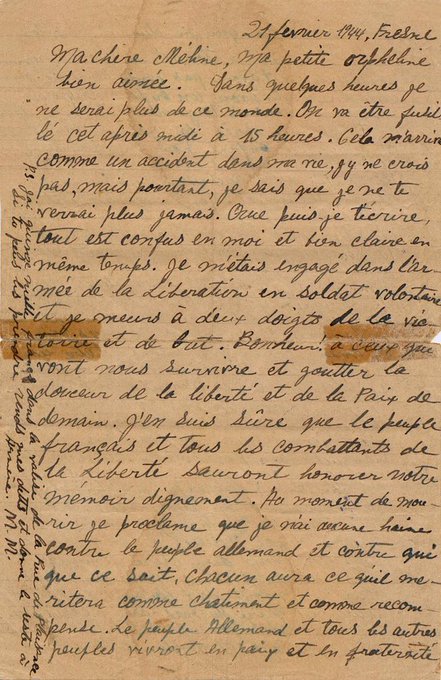 21 fevrier 1944, Fresne
Ma chère Méline, ma petite orpheline
bien aimée. Dans quelques heures je
ne serai plus de ce monde. On va être fusil
lé cet après midi à 15 heures. Cela m'arrive
comme un accident dans ma vie, j'y ne crois
pas, mais pourtant, je sais que je ne te
verrai plus jamais. Que puis-je t'écrire,
tout est confus en moi et bien claire en
même temps. Je m'étais engagé dans l'ar-
mée de la Libération en soldat volontaire
et je meurs à deux doigts de la vic-
toire et de but. Bonheur! à ceux qui
vont nous survivre et goutter la
douceur de la liberté et de la Paix de
demain. J'en suis sûre que le peuple
français et tous les combattants de
la Liberté sauront honorer notre
mémoir dignement. Au moment de mou-
rir je proclame que je n'ai aucune haine
contre le peuple allemand et contre qui
que ce soit, chacun aura ce qu'il mé-
ritera comme chatiment et comme recom-
pense. Le peuple Allemand et tous les autres
peuples vivront en paix et en fraternité
PS. J'ai quinze mille francs dans la valise de la Rue de Plaisance
Si tu peus les prendre rends mes dettes et donne le reste à
Armène. M. M.